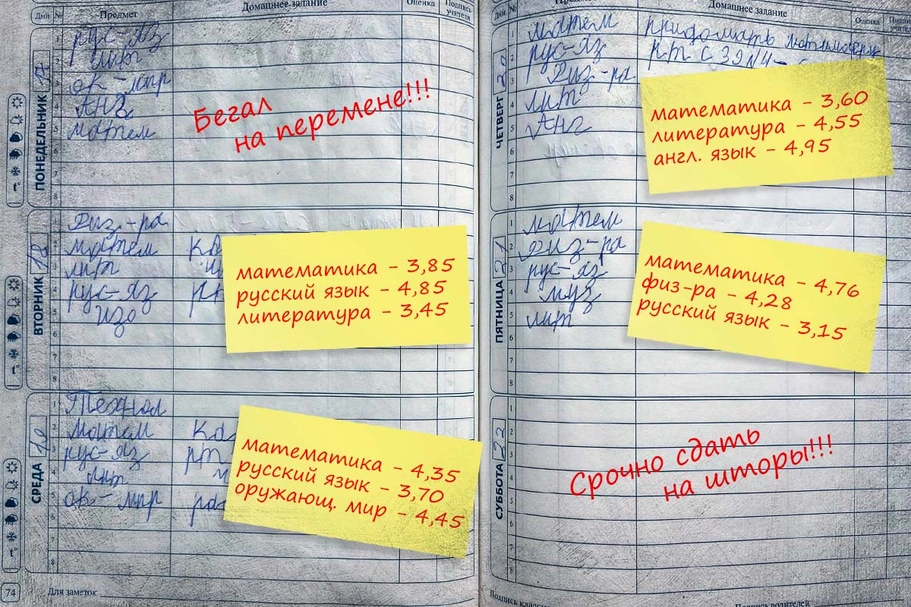 Дни № Предмет Домашнее задание Оценка Подпись учителя
ПОНЕДЕЛЬНИК
рус-яз
лит
ок-мир
Анг
матем
Бегал
на перемене!!!
ВТОРНИК 18
физ-ра
матем
лит
рус-яз
изо
математика - 3,85
русский язык - 4,85
литература - 3,45
СРЕДА
Технол
матем
рус-яз
лит
ок-мир
математика - 4,35
русский язык - 3,70
оружающ. мир - 4,45
74 Для заметок
Дни № Домашнее задание Оценка
ЧЕТВЕРГ 20
матем
рус-яз
физ-ра
лит
Анг
математика - 3,60
литература - 4,55
англ. язык - 4,95
ПЯТНИЦА 21
матем
физ-ра
рус-яз
муз
лит
математика - 4,76
физ-ра - 4,28
русский язык - 3,15
СУББОТА 22
Срочно сдать
на шторы!!!
Подпись родителей